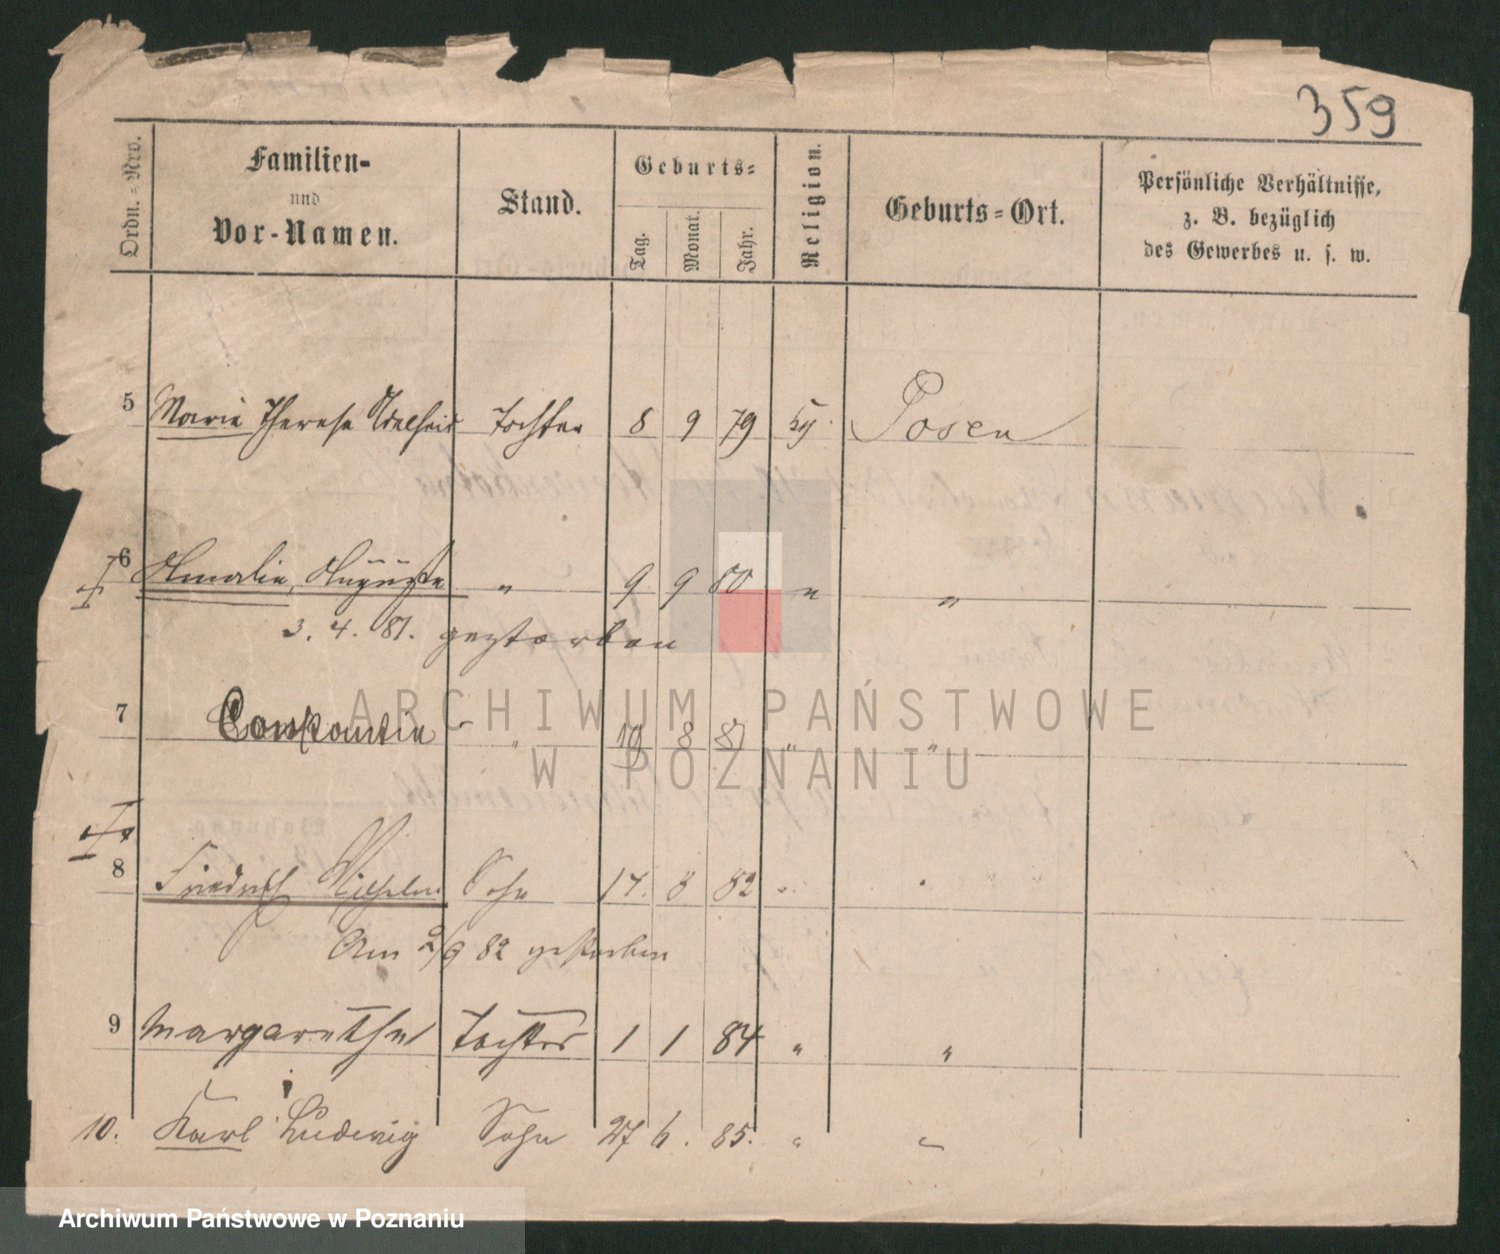 359
Ordn.-Nro.
Familien-
und
Vor-Namen.
Stand.
Geburts-
Tag.
Monat.
Jahr.
Religion.
Geburts-Ort.
Persönliche Verhältnisse,
z. B. bezüglich
des Gewerbes u. s. w.
5 Marie Therese Adelheid Tochter 8 9 79 Posen
6 Amalie, Auguste " 9 9 80 " "
3. 4. 81. gestorben
7 Constantin " 19 8 81 " "
8 Friedrich Wilhelm Sohn 17. 8 82 " "
Am 2/9 82 gestorben
9 Margarethe Tochter 1 1 84 " "
10. Karl Ludwig Sohn 27 6. 85. " "
ARCHIWUM PAŃSTWOWE
W POZNANIU
Archiwum Państwowe w Poznaniu